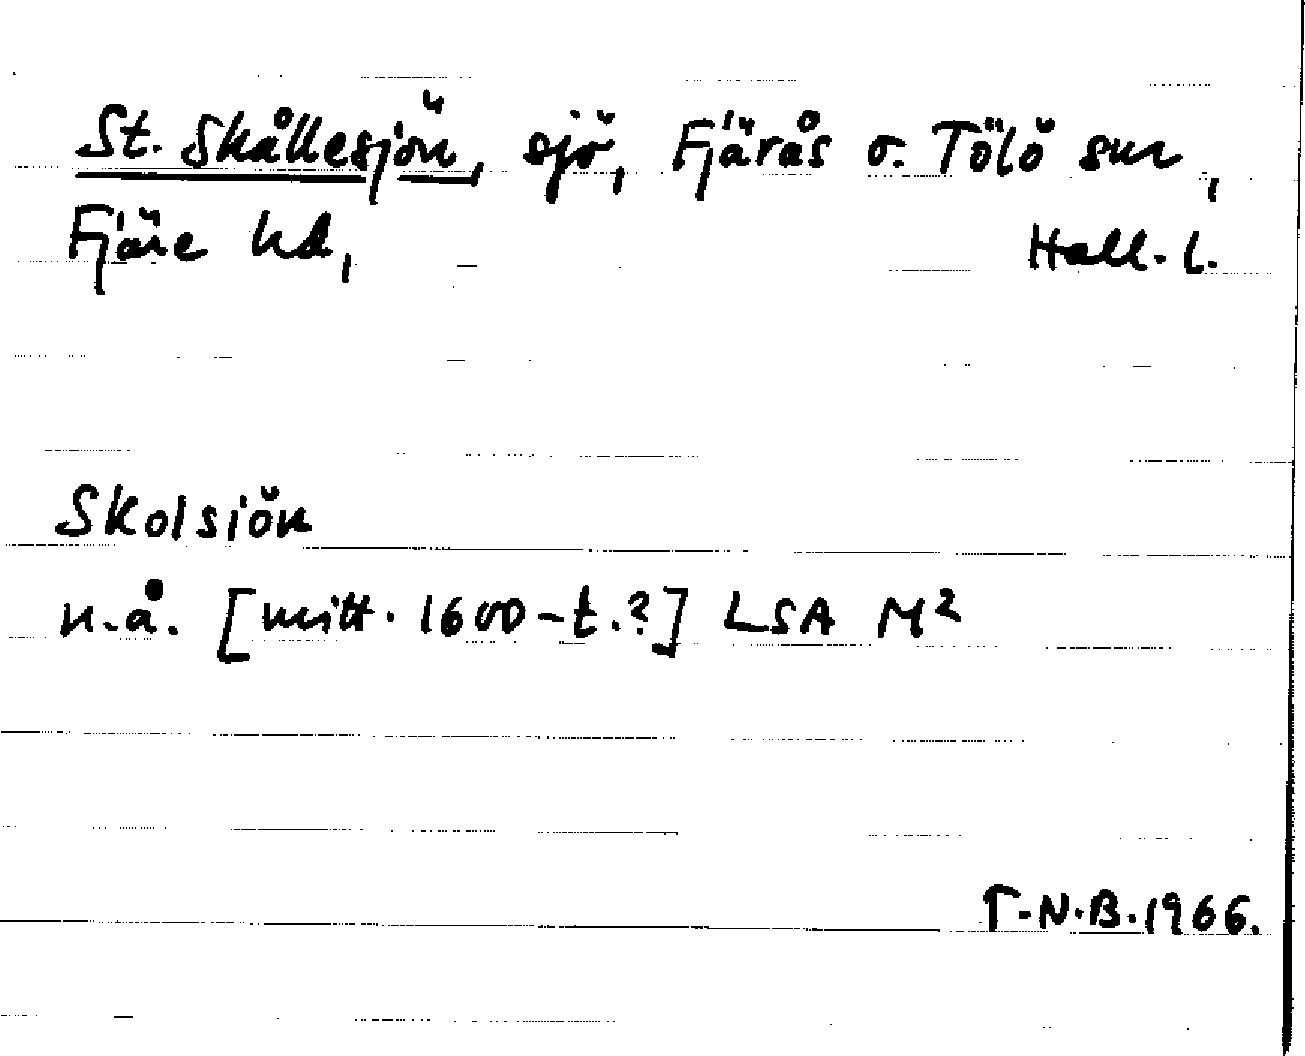 St. Skållesjön, sjö, Fjärås o. Tölö snr,
Fjäre hd, Hall. l.
Skolsiön
n.å. [mitt. 1600-t.?] LSA N²
T.N.B. 1966.